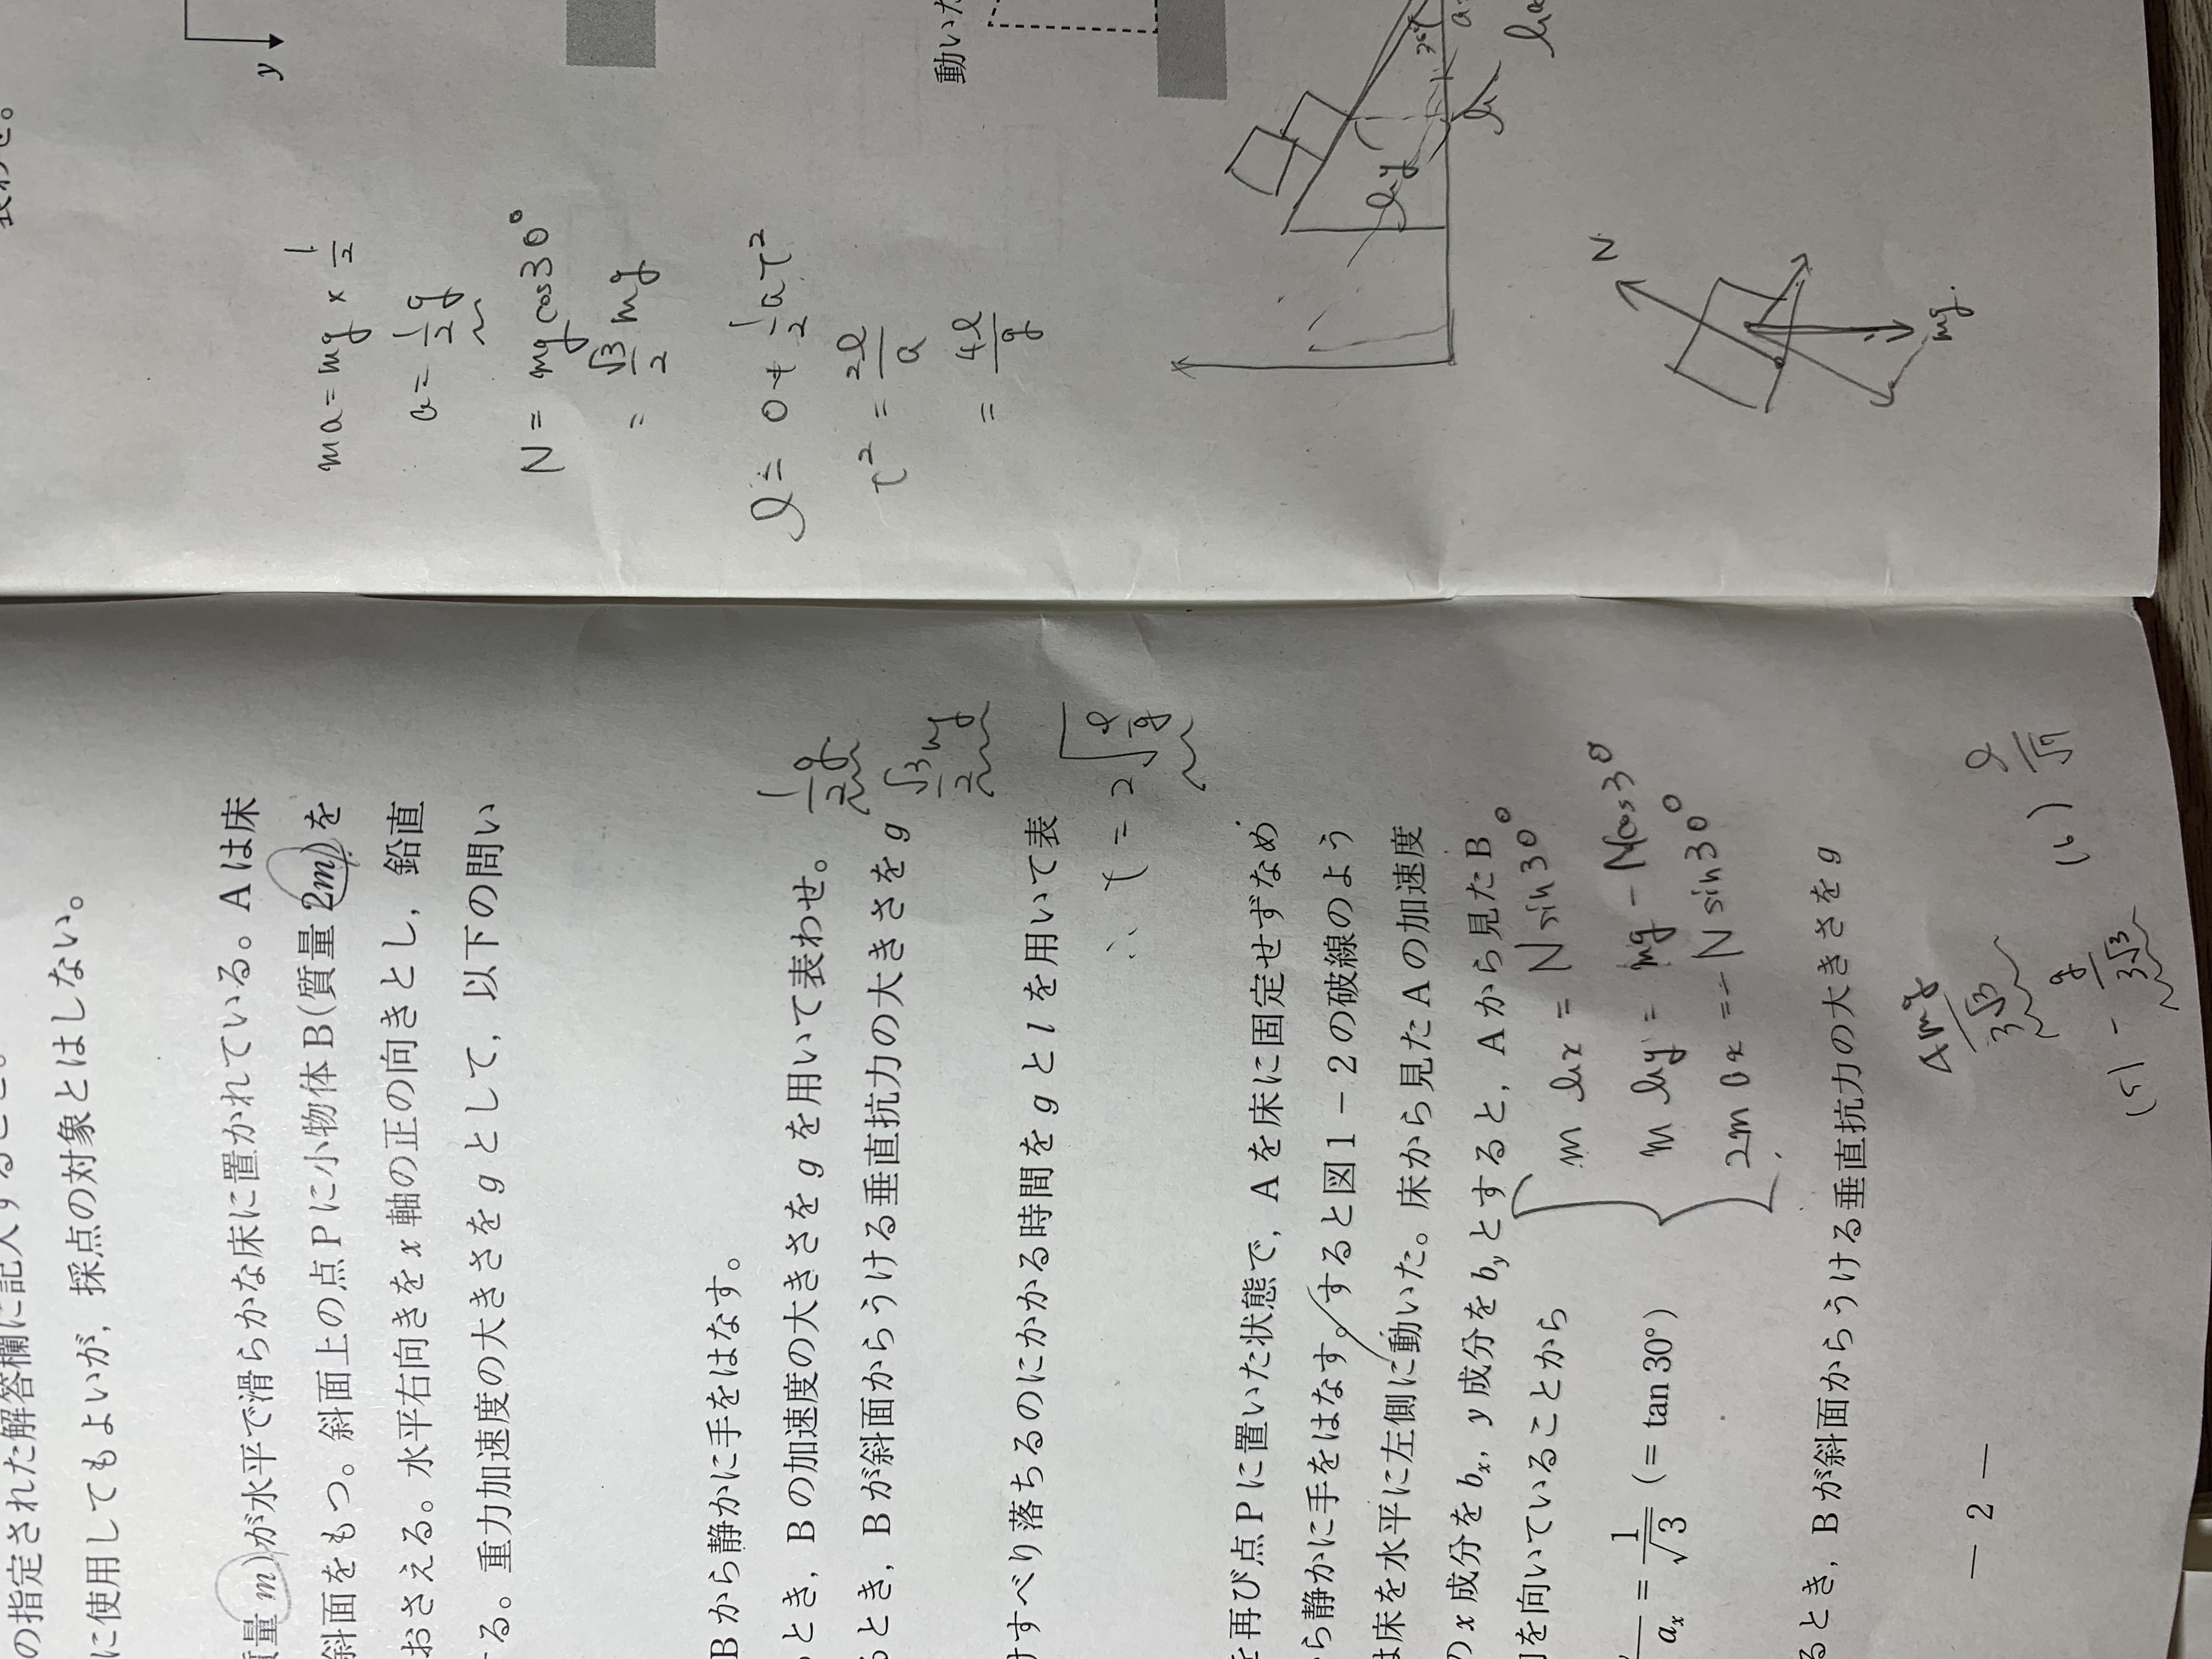 の指定された解答欄に記入すること。
に使用してもよいが,採点の対象とはしない。
質量m)が水平で滑らかな床に置かれている。Aは床
斜面をもつ。斜面上の点Pに小物体B(質量2m)を
おさえる。水平右向きをx軸の正の向きとし,鉛直
する。重力加速度の大きさをgとして,以下の問い
Bから静かに手をはなす。
とき,Bの加速度の大きさをgを用いて表わせ。
1/2 g
るとき,Bが斜面からうける垂直抗力の大きさをg
√3/2 mg
けすべり落ちるのにかかる時間をgとlを用いて表
∴ t = 2√(l/g)
を再び点Pに置いた状態で,Aを床に固定せずなめ
ら静かに手をはなす。すると図1-2の破線のよう
は床を水平に左側に動いた。床から見たAの加速度
のx成分をbx, y成分をbyとすると,Aから見たB
向を向いていることから
m bx = N sin30°
m by = mg - N cos30°
2m ax = - N sin30°
ax = 1/√3 (= tan30°)
るとき,Bが斜面からうける垂直抗力の大きさをg
4mg/3√3
(5) - g/3√3
(6)
- 2 -
表わせ。
y
動いた
ma = mg × 1/2
a = 1/2 g
N = mg cos30°
= √3/2 mg
l = 0 + 1/2 a t²
t² = 2l/a
= 4l/g
by
N
mg